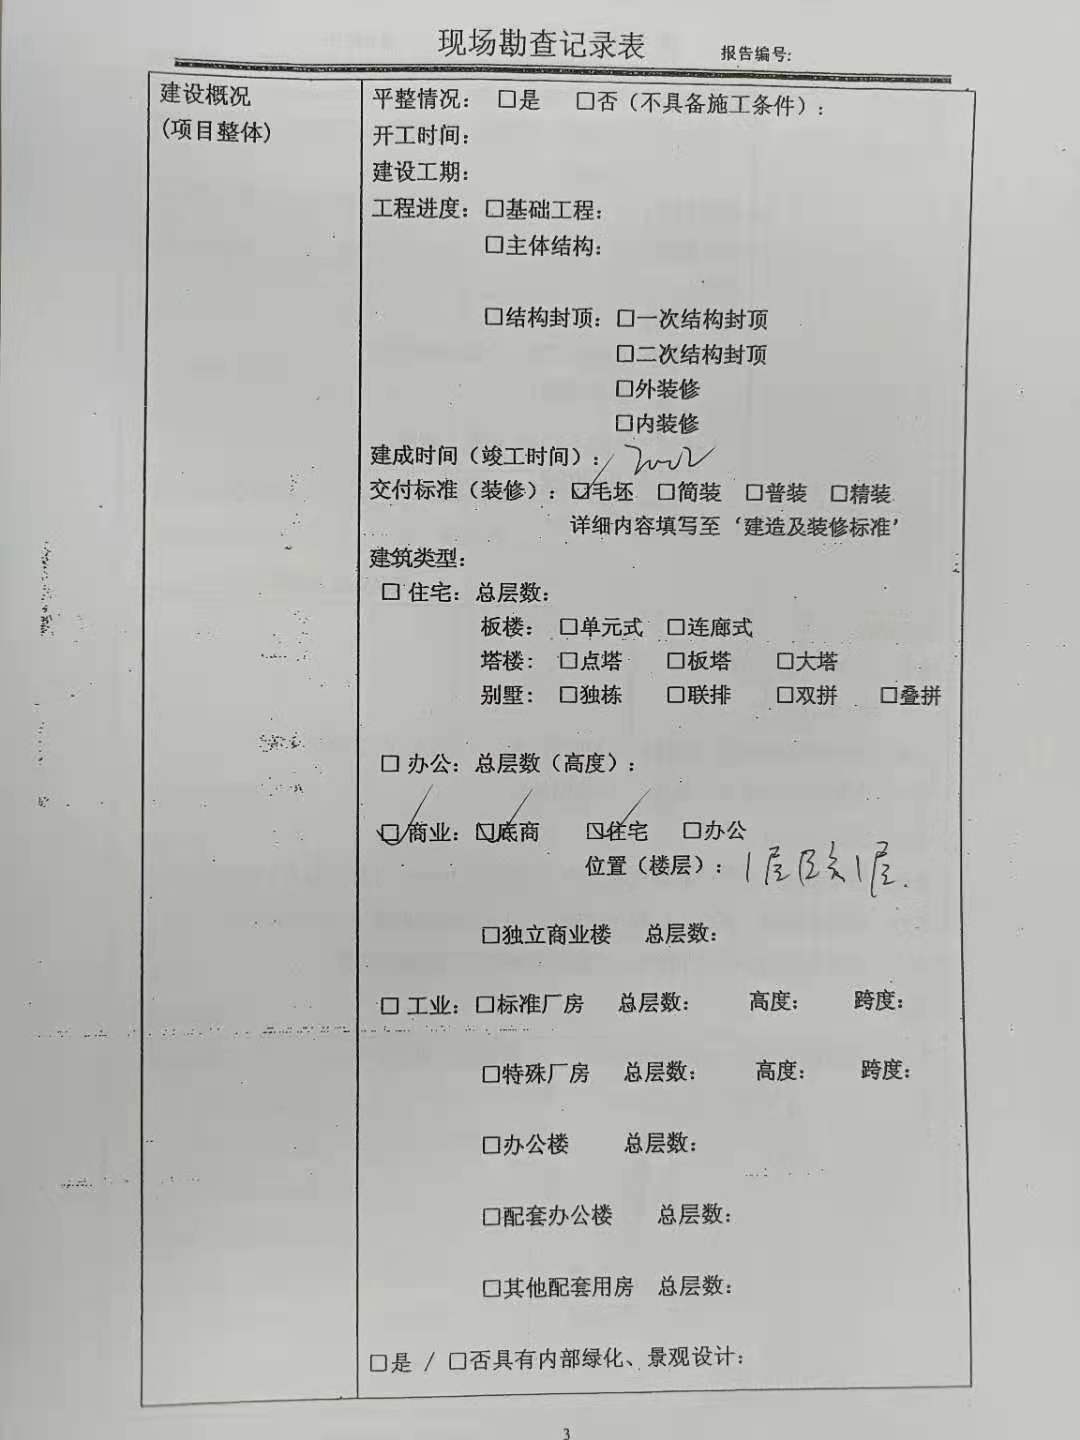 现场勘查记录表 报告编号:
建设概况
(项目整体)
平整情况： □是 □否（不具备施工条件）：
开工时间：
建设工期：
工程进度：□基础工程：
□主体结构：
□结构封顶：□一次结构封顶
□二次结构封顶
□外装修
□内装修
建成时间（竣工时间）：2002
交付标准（装修）：☑毛坯 □简装 □普装 □精装
详细内容填写至‘建造及装修标准’
建筑类型：
□ 住宅：总层数：
板楼： □单元式 □连廊式
塔楼： □点塔 □板塔 □大塔
别墅： □独栋 □联排 □双拼 □叠拼
□ 办公：总层数（高度）：
☑ 商业：☑底商 ☑住宅 □办公
位置（楼层）：1层 1层.
□独立商业楼 总层数：
□ 工业：□标准厂房 总层数： 高度： 跨度：
□特殊厂房 总层数： 高度： 跨度：
□办公楼 总层数：
□配套办公楼 总层数：
□其他配套用房 总层数：
□是 / □否具有内部绿化、景观设计：
3